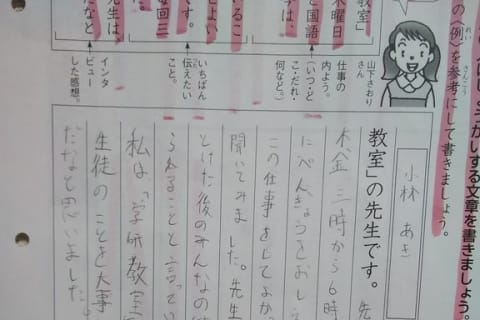 しょうかいする文章を書きましょう。
の〈例〉を参考にして書きましょう。
山下さおり
さん
教室」
木曜日
と国語
仕事の
内よう。
(いつ・ど
こ・だれ・
何など。)
いるこ
てよい
です。
毎回三
いちばん
伝えたい
こと。
先生は、
だなと
インタ
ビュー
した感想。
小林 あき
教室」の先生です。先
木、金、三時から6時
にべんきょうをおしえ
この仕事をしてよか
聞いてみました。先生
とけた後のみんなの
られることと言ってい
私は、「学研教室
生徒のことを大事
だなと思いました。